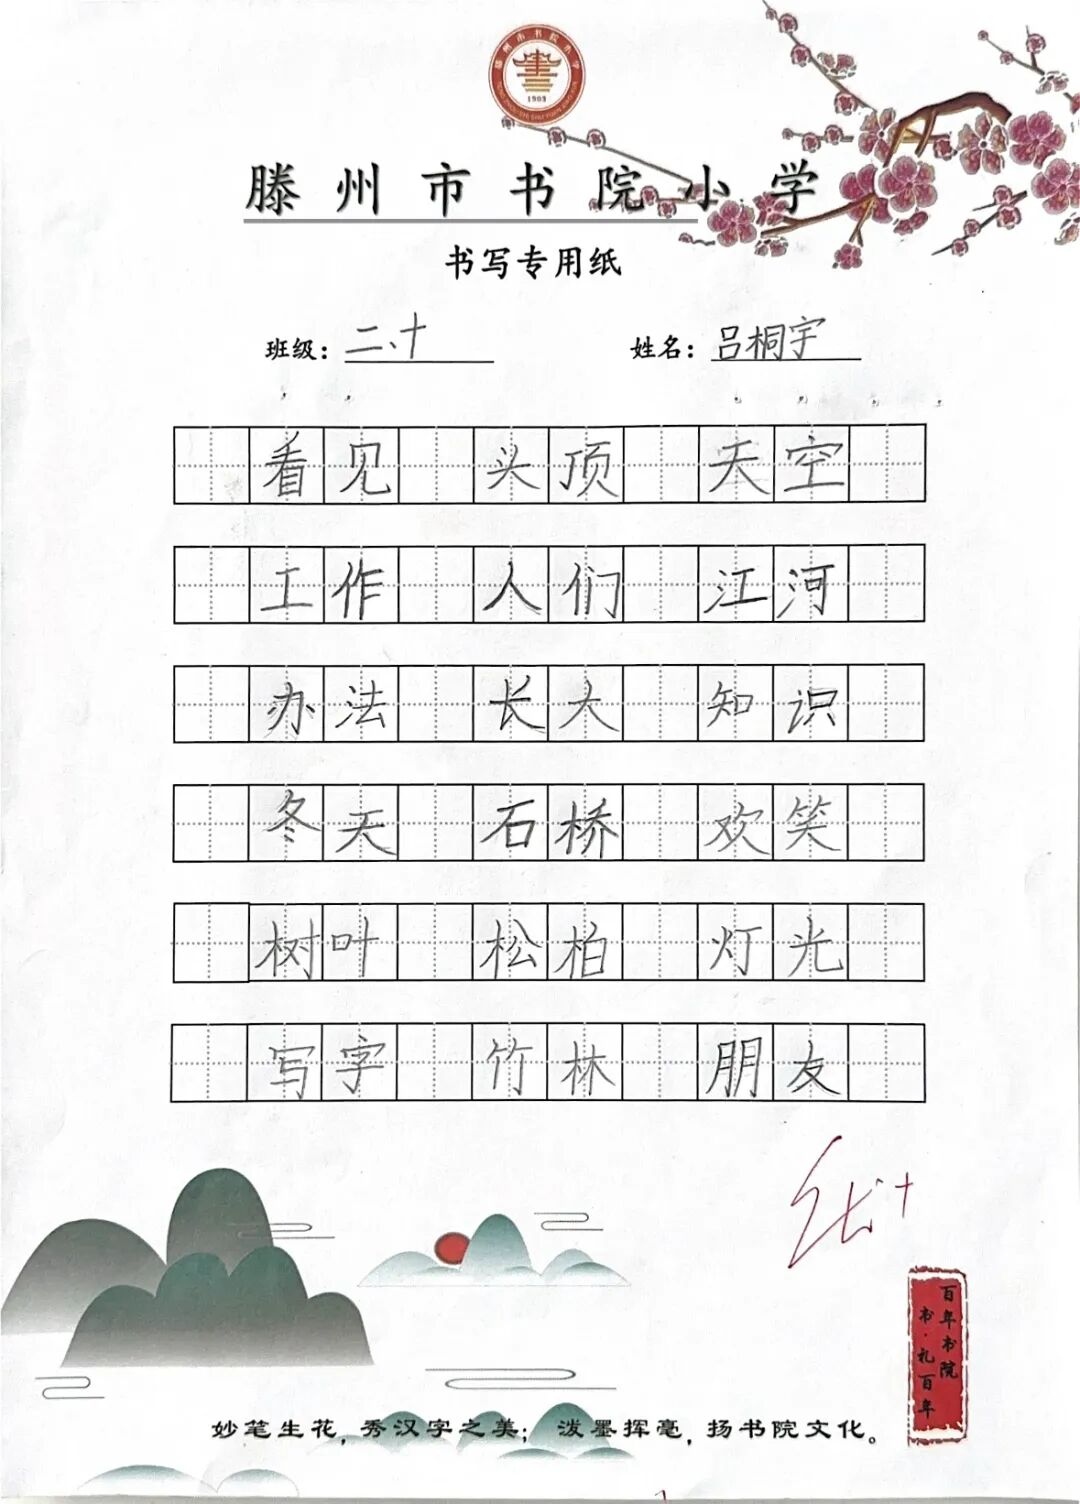 滕州市书院小学
1903
滕州市书院小学
书写专用纸
班级：二、十 姓名：吕桐宇
看见 头顶 天空
工作 人们 江河
办法 长大 知识
冬天 石桥 欢笑
树叶 松柏 灯光
写字 竹林 朋友
优+
百年书院
书·礼百年
妙笔生花，秀汉字之美； 泼墨挥毫，扬书院文化。